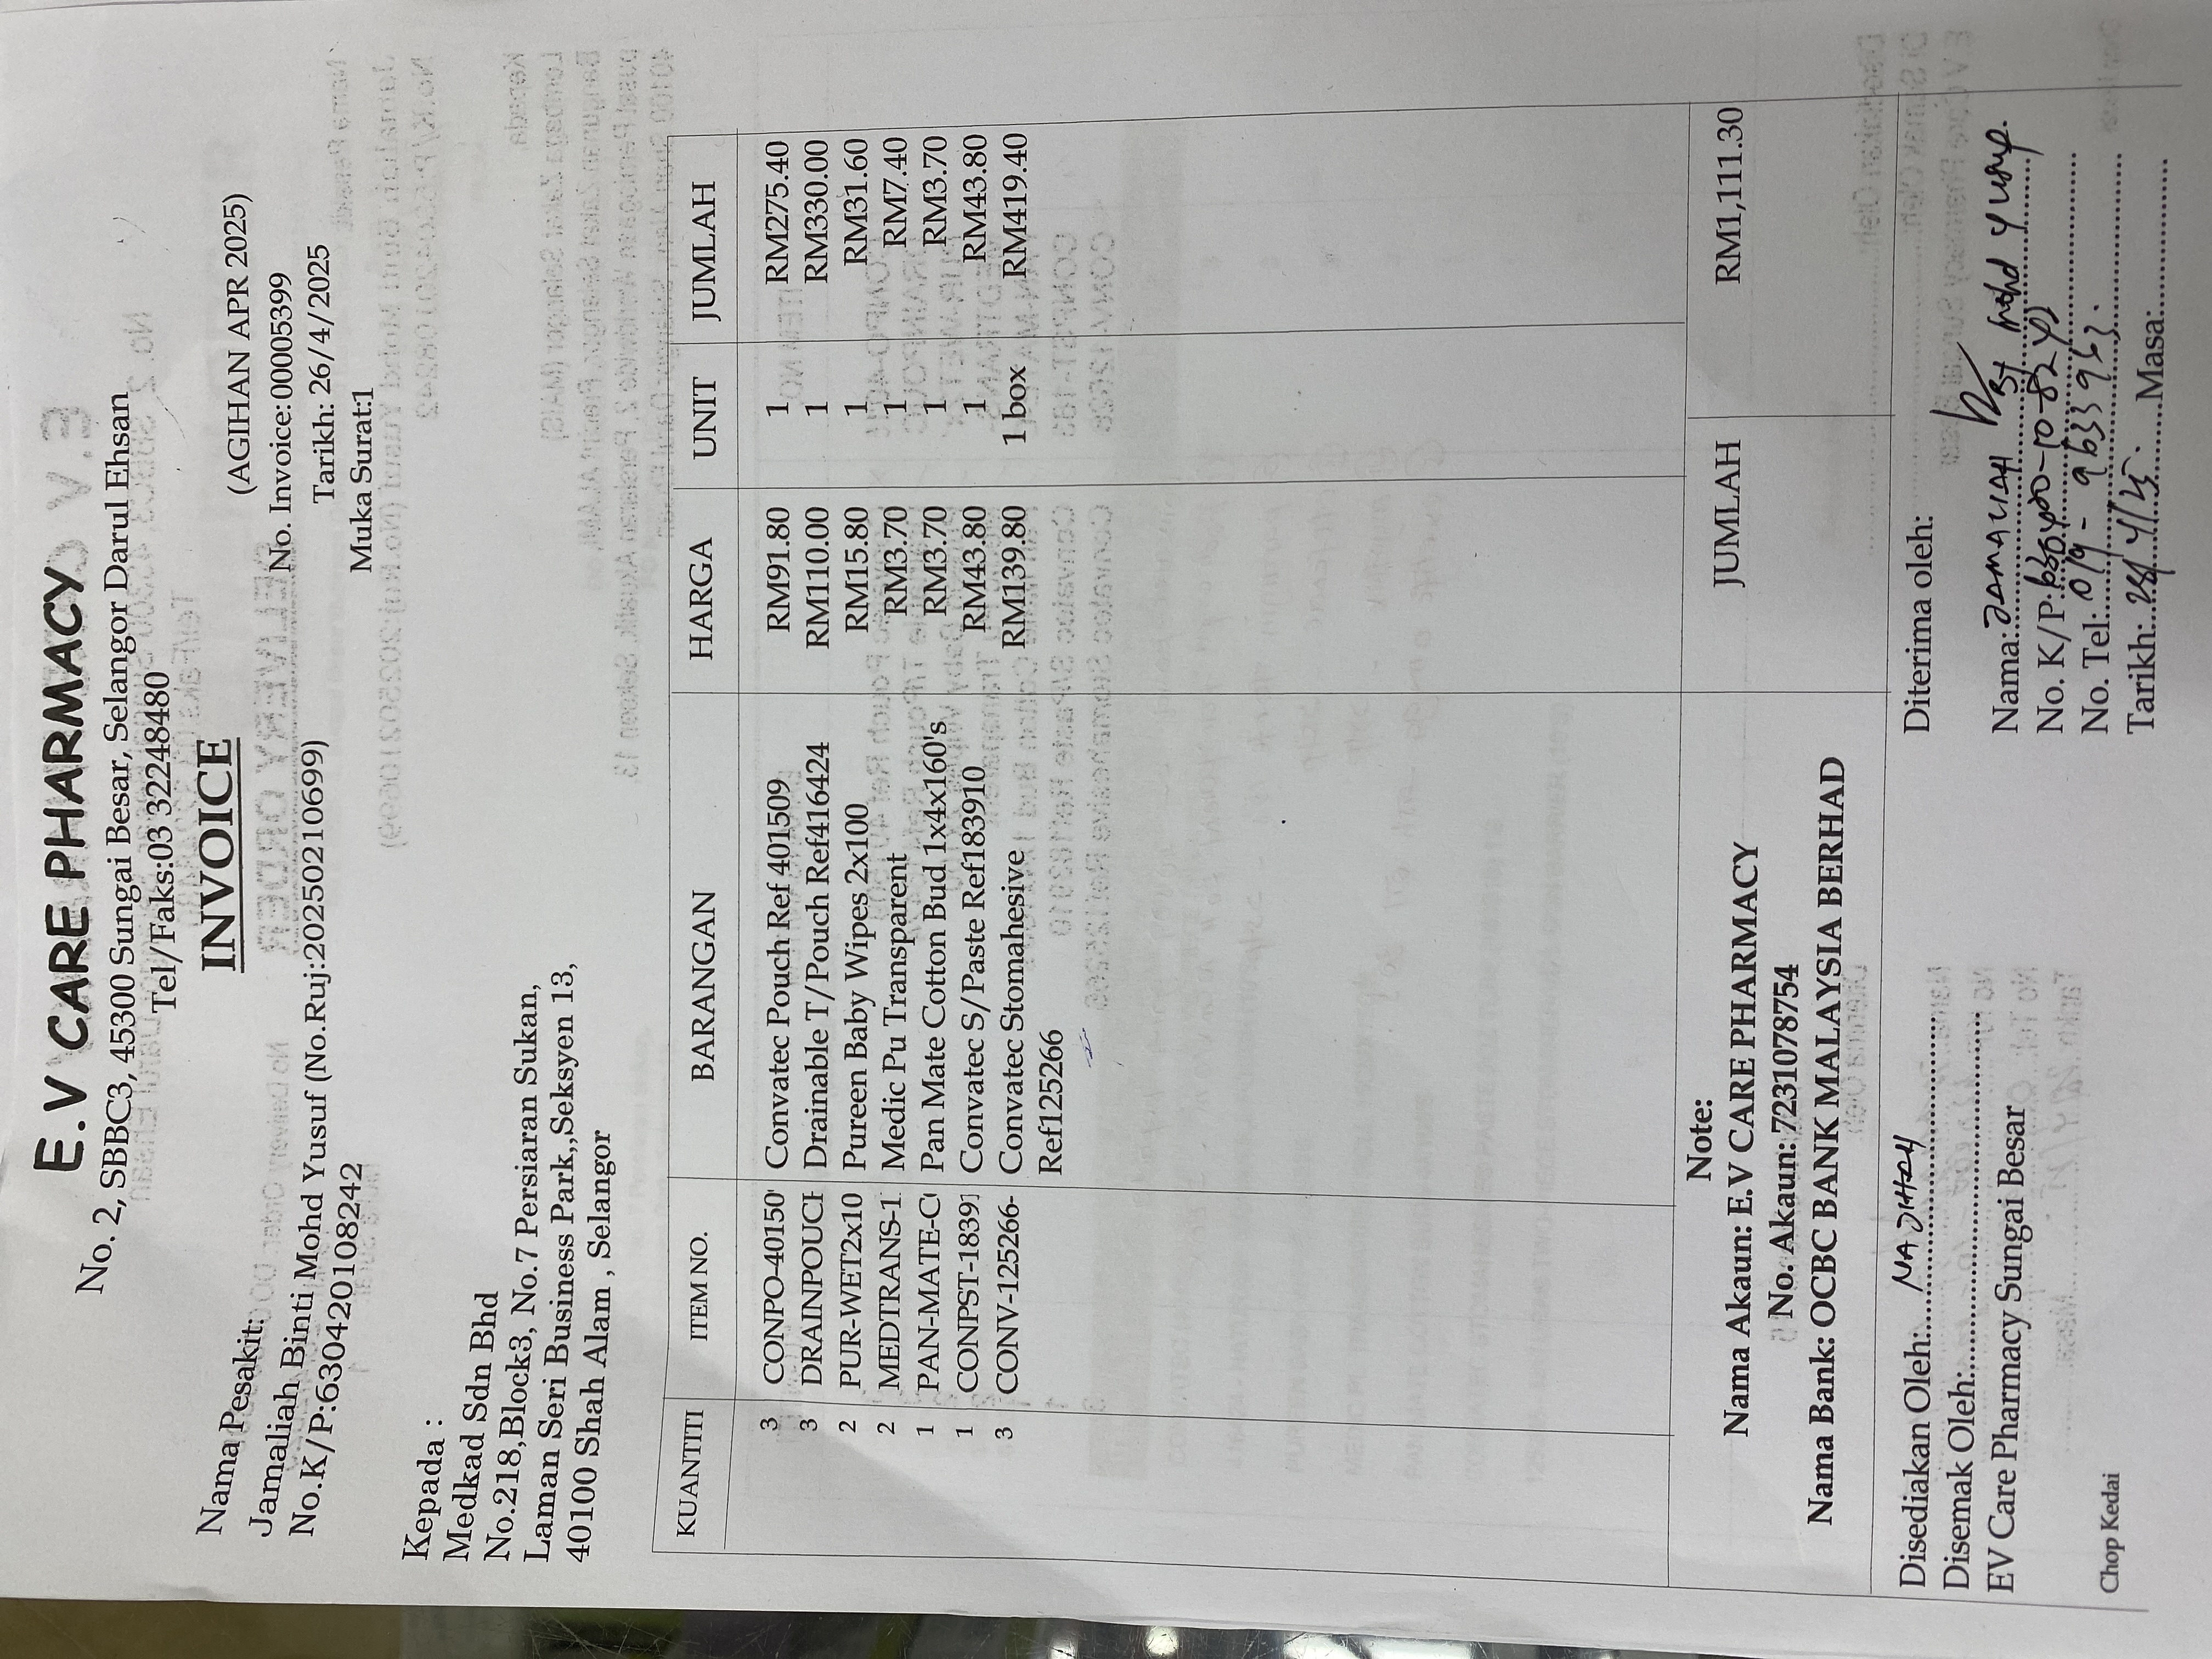 E.V CARE PHARMACY
No. 2, SBBC3, 45300 Sungai Besar, Selangor Darul Ehsan
Tel/Faks:03 32248480
INVOICE
(AGIHAN APR 2025)
Nama Pesakit:
Jamaliah Binti Mohd Yusuf (No.Ruj:20250210699)
No.K/P:630420108242
No. Invoice: 00005399
Tarikh: 26/4/2025
Muka Surat:1
Kepada :
Medkad Sdn Bhd
No.218,Block3, No.7 Persiaran Sukan,
Laman Seri Business Park,,Seksyen 13,
40100 Shah Alam , Selangor
KUANTITI ITEM NO. BARANGAN HARGA UNIT JUMLAH
3 CONPO-40150 Convatec Pouch Ref 401509 RM91.80 1 RM275.40
3 DRAINPOUCH Drainable T/Pouch Ref416424 RM110.00 1 RM330.00
2 PUR-WET2x10 Pureen Baby Wipes 2x100 RM15.80 1 RM31.60
2 MEDTRANS-1 Medic Pu Transparent RM3.70 1 RM7.40
1 PAN-MATE-C Pan Mate Cotton Bud 1x4x160's RM3.70 1 RM3.70
1 CONPST-18391 Convatec S/Paste Ref183910 RM43.80 1 RM43.80
3 CONV-125266- Convatec Stomahesive RM139.80 1 box RM419.40
Ref125266
Note:
Nama Akaun: E.V CARE PHARMACY
No. Akaun: 7231078754
Nama Bank: OCBC BANK MALAYSIA BERHAD
JUMLAH RM1,111.30
Disediakan Oleh: NAJIHAH
Disemak Oleh:
EV Care Pharmacy Sungai Besar
Chop Kedai
Diterima oleh:
Nama: JAMALIAH Bt Mohd Yusuf.
No. K/P: 630420-10-8242
No. Tel: 019- 9633963.
Tarikh: 28/4/25. Masa: